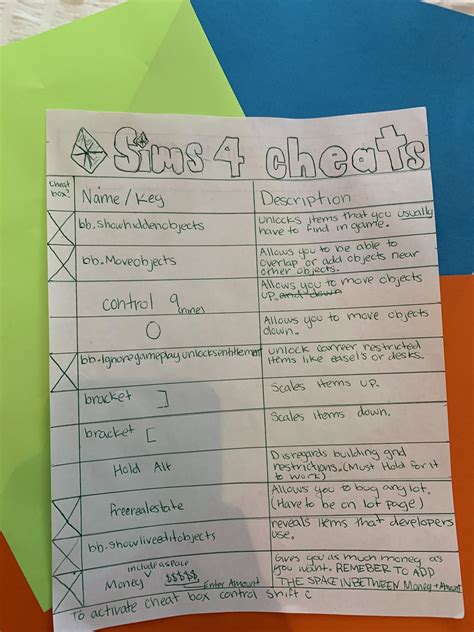 Sims 4 cheats
cheat
box?
Name/Key
Description
bb.showhiddenobjects
unlocks items that you usually
have to find in game.
bb.Moveobjects
Allows you to be able to
overlap or add objects near
other objects.
control 9
nines
Allows you to move objects
up and down
O
Allows you to move objects
down.
bb.Ignoregameplayunlocksentitlement
unlock carreer restricted
items like easel's or desks.
bracket ]
Scales items up.
bracket [
Scales items down.
Hold Alt
Disregards building grid
restrictions. (Must Hold for it
to work)
freerealestate
Allows you to bug any lot.
(Have to be on lot page)
bb.showliveeditobjects
reveals items that developers
use.
include a space
Money $$$$$ Enter Amount
Gives you as much money as
you want. REMEBER TO ADD
THE SPACE IN BETWEEN Money + Amount
To activate cheat box control shift c